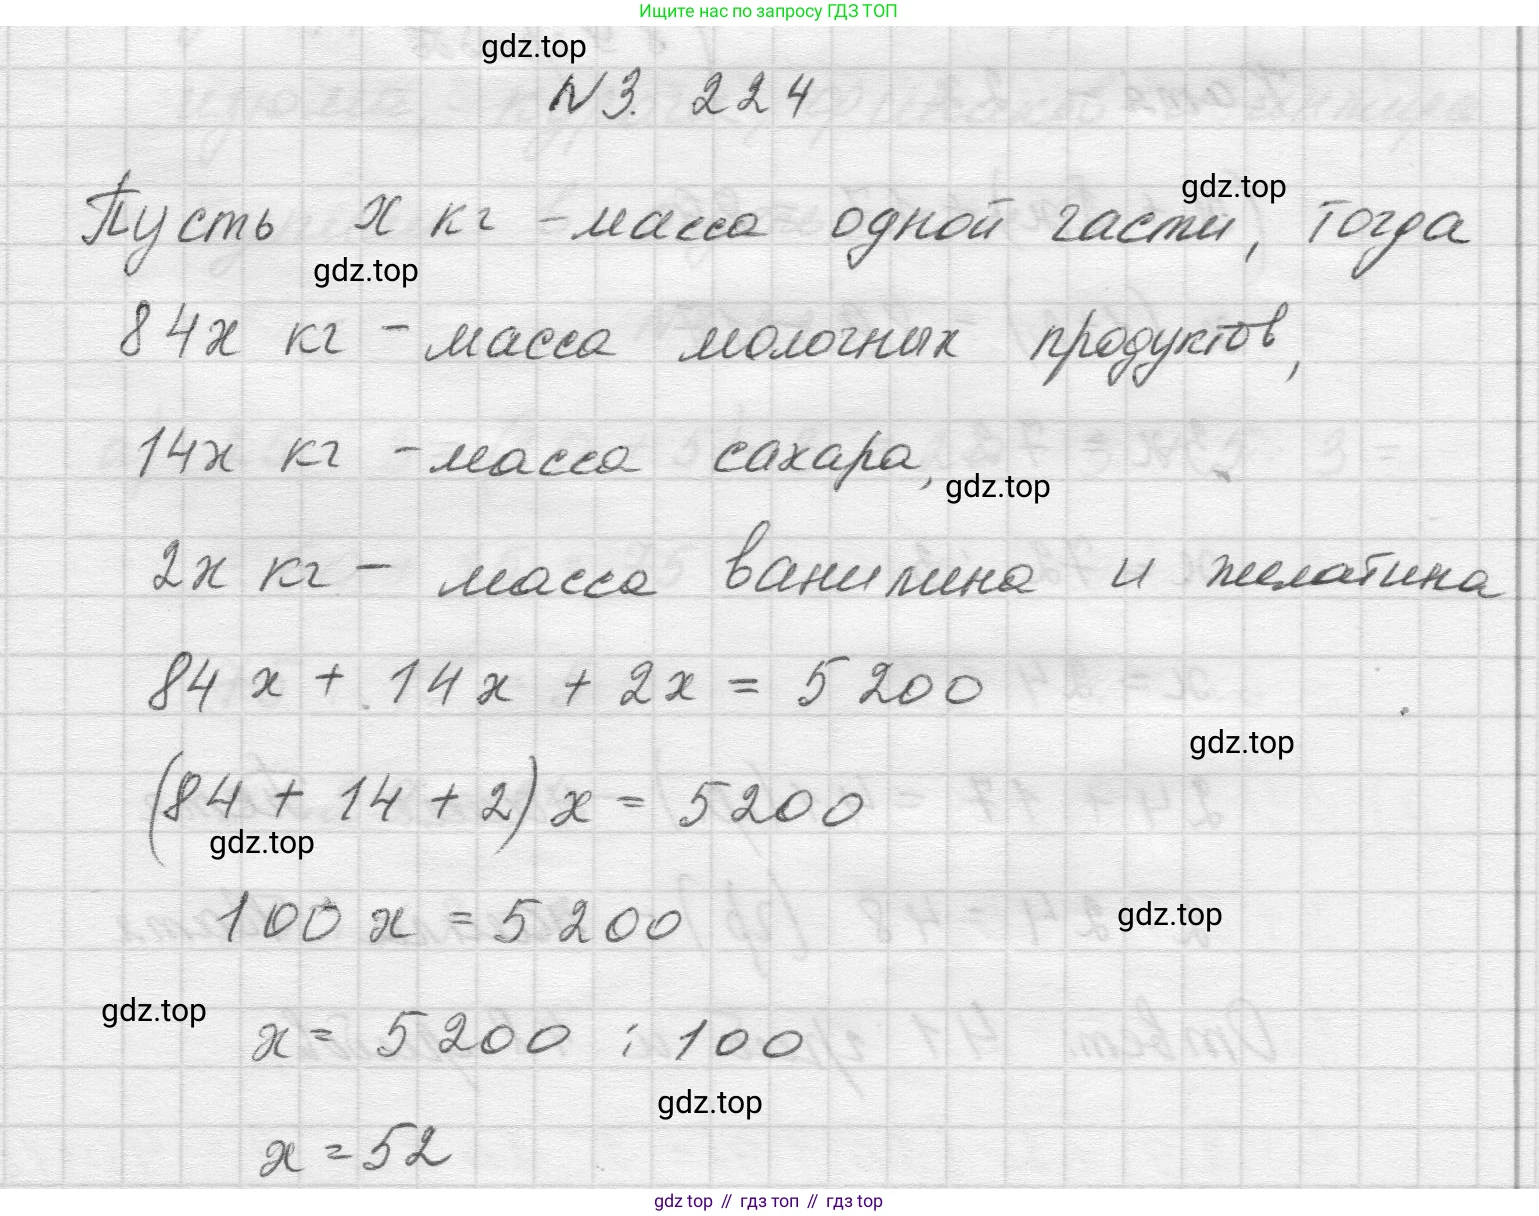 Ищите нас по запросу ГДЗ ТОП
gdz.top
N 3. 224
gdz.top
Пусть x кг - масса одной части, тогда
gdz.top
84x кг - масса молочных продуктов,
14x кг - масса сахара,
gdz.top
2x кг - масса ванилина и желатина
84x + 14x + 2x = 5200
gdz.top
(84 + 14 + 2)x = 5200
gdz.top
100x = 5200
gdz.top
gdz.top
x = 5200 : 100
gdz.top
x = 52
gdz.top // гдз топ // гдз top